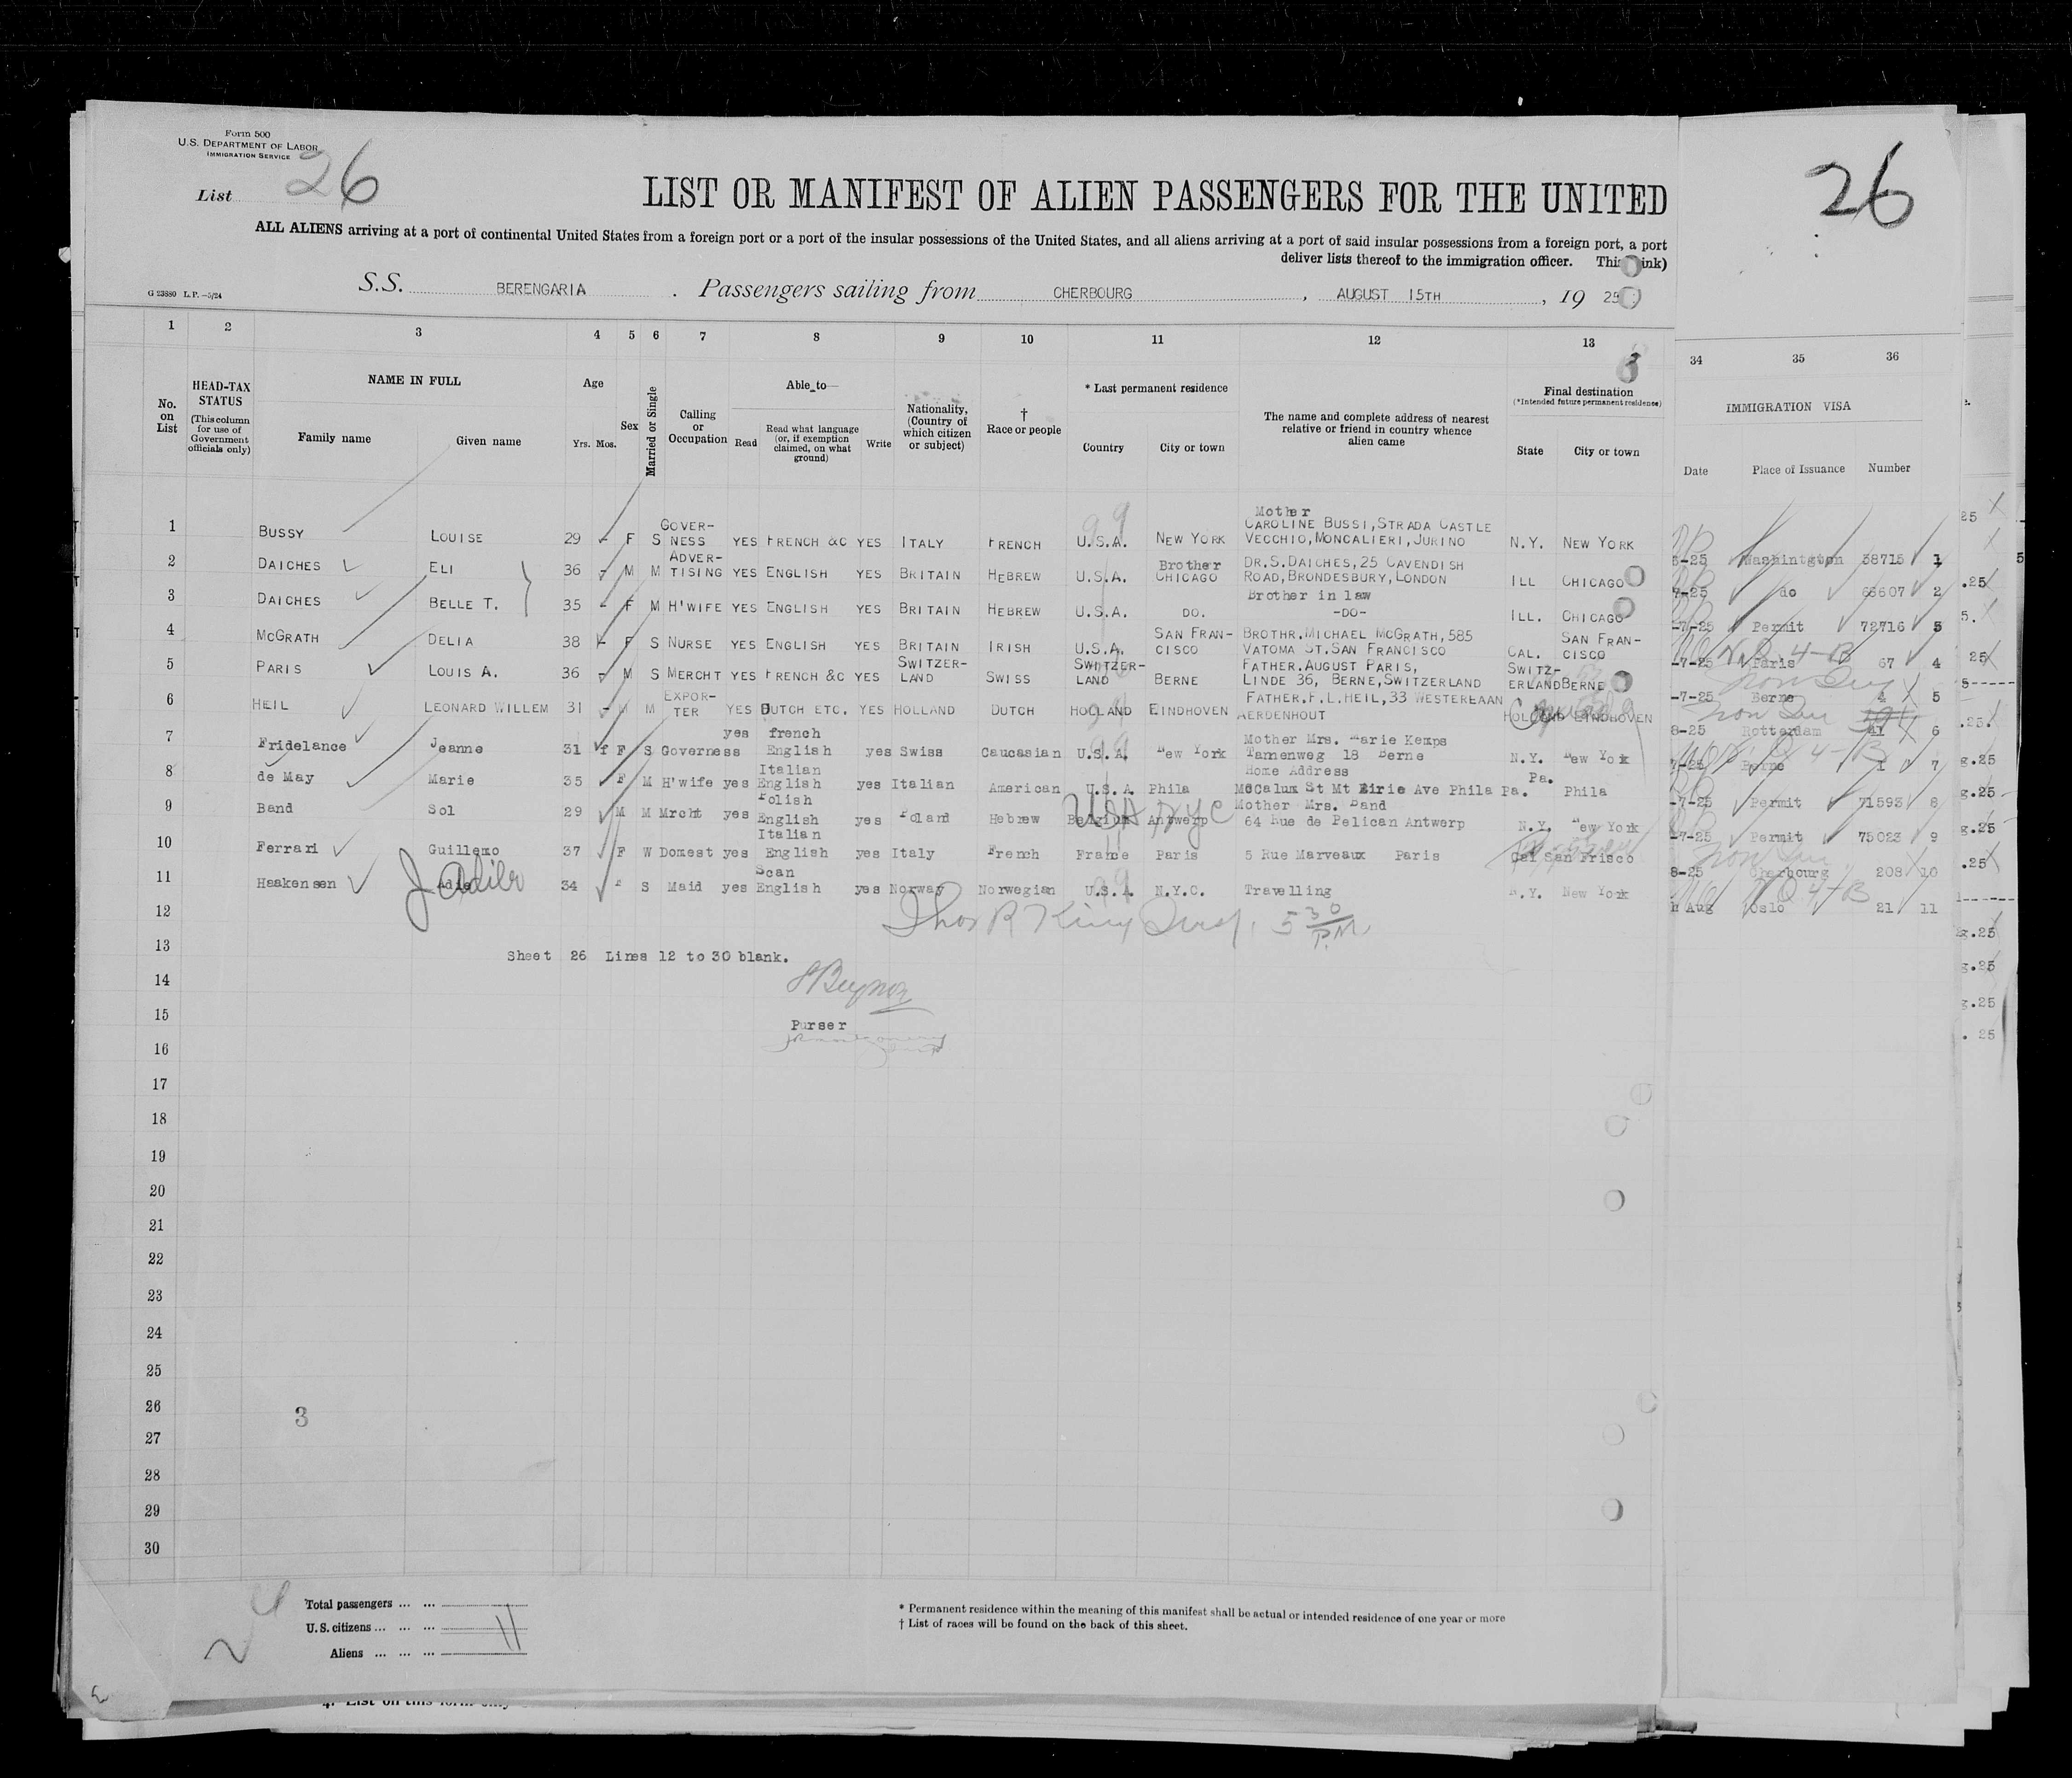 Form 500
U.S. DEPARTMENT OF LABOR
IMMIGRATION SERVICE
List 26
LIST OR MANIFEST OF ALIEN PASSENGERS FOR THE UNITED
26
ALL ALIENS arriving at a port of continental United States from a foreign port or a port of the insular possessions of the United States, and all aliens arriving at a port of said insular possessions from a foreign port, a port
deliver lists thereof to the immigration officer. This ink)
G 23880 L.P.—5/24
S.S. BERENGARIA. Passengers sailing from CHERBOURG, AUGUST 15TH, 19 25
1 2 3 4 5 6 7 8 9 10 11 12 13 34 35 36
No. on List
HEAD-TAX STATUS (This column for use of Government officials only)
NAME IN FULL
Family name Given name
Age
Yrs. Mos.
Sex
Married or Single
Calling or Occupation
Able to—
Read Read what language (or, if exemption claimed, on what ground) Write
Nationality, (Country of which citizen or subject)
† Race or people
* Last permanent residence
Country City or town
The name and complete address of nearest relative or friend in country whence alien came
Final destination
(*Intended future permanent residence)
State City or town
IMMIGRATION VISA
Date Place of Issuance Number
1 BUSSY LOUISE 29 F S GOVER-NESS YES FRENCH &C YES ITALY FRENCH U.S.A. NEW YORK Mother CAROLINE BUSSI, STRADA CASTLE VECCHIO, MONCALIERI, JURINO N.Y. NEW YORK 8-25 Washintgton 58715 1
2 DAICHES ELI 36 M M ADVER-TISING YES ENGLISH YES BRITAIN HEBREW U.S.A. CHICAGO Brother DR.S.DAICHES, 25 CAVENDISH ROAD, BRONDESBURY, LONDON ILL CHICAGO 7-25 do 63607 2
3 DAICHES BELLE T. 35 F M H'WIFE YES ENGLISH YES BRITAIN HEBREW U.S.A. DO. Brother in law -DO- ILL. CHICAGO -7-25 Permit 72716 3
4 MCGRATH DELIA 38 F S NURSE YES ENGLISH YES BRITAIN IRISH U.S.A. SAN FRAN-CISCO BROTHR.MICHAEL MCGRATH, 585 VATOMA ST.SAN FRANCISCO CAL. SAN FRAN-CISCO -7-25 Paris 67 4
5 PARIS LOUIS A. 36 M S MERCHT YES FRENCH &C YES SWITZER-LAND SWISS SWITZER-LAND BERNE FATHER.AUGUST PARIS, LINDE 36, BERNE, SWITZERLAND SWITZ-ERLAND BERNE -7-25 Berne 4 5
6 HEIL LEONARD WILLEM 31 M M EXPOR-TER YES DUTCH ETC. YES HOLLAND DUTCH HOLLAND EINDHOVEN FATHER, F.L.HEIL, 33 WESTERLAAN AERDENHOUT HOLLAND EINDHOVEN 8-25 Rotterdam 41 6
7 Fridelance Jeanne 31 F S Governess yes french English yes Swiss Caucasian U.S.A. New York Mother Mrs. Marie Kemps Tamenweg 18 Berne N.Y. New York 7-25 Berne 1 7
8 de May Marie 35 F M H'wife yes Italian English yes Italian American U.S.A. Phila Home Address McCalum St Mt Eirie Ave Phila Pa. Pa. Phila -7-25 Permit 71593 8
9 Band Sol 29 M M Mrcht yes Polish English yes Poland Hebrew Belgium Antwerp USA NYC Mother Mrs. Band 64 Rue de Pelican Antwerp N.Y. New York -7-25 Permit 75023 9
10 Ferrari Guillemo 37 F W Domest yes Italian English yes Italy French France Paris 5 Rue Marveaux Paris Cal San Frisco 8-25 Cherbourg 208 10
11 Haakensen Adie 34 F S Maid yes Scan English yes Norway Norwegian U.S.A. N.Y.C. Travelling N.Y. New York h Aug Oslo 21 11
12
Thos R King Insp. 5 30 P.M.
13
Sheet 26 Lines 12 to 30 blank.
14
15
Purser
16
17
18
19
20
21
22
23
24
25
26
3
27
28
29
30
Total passengers ... ...
U.S. citizens ... ... ... 11
Aliens ... ... ...
* Permanent residence within the meaning of this manifest shall be actual or intended residence of one year or more
† List of races will be found on the back of this sheet.